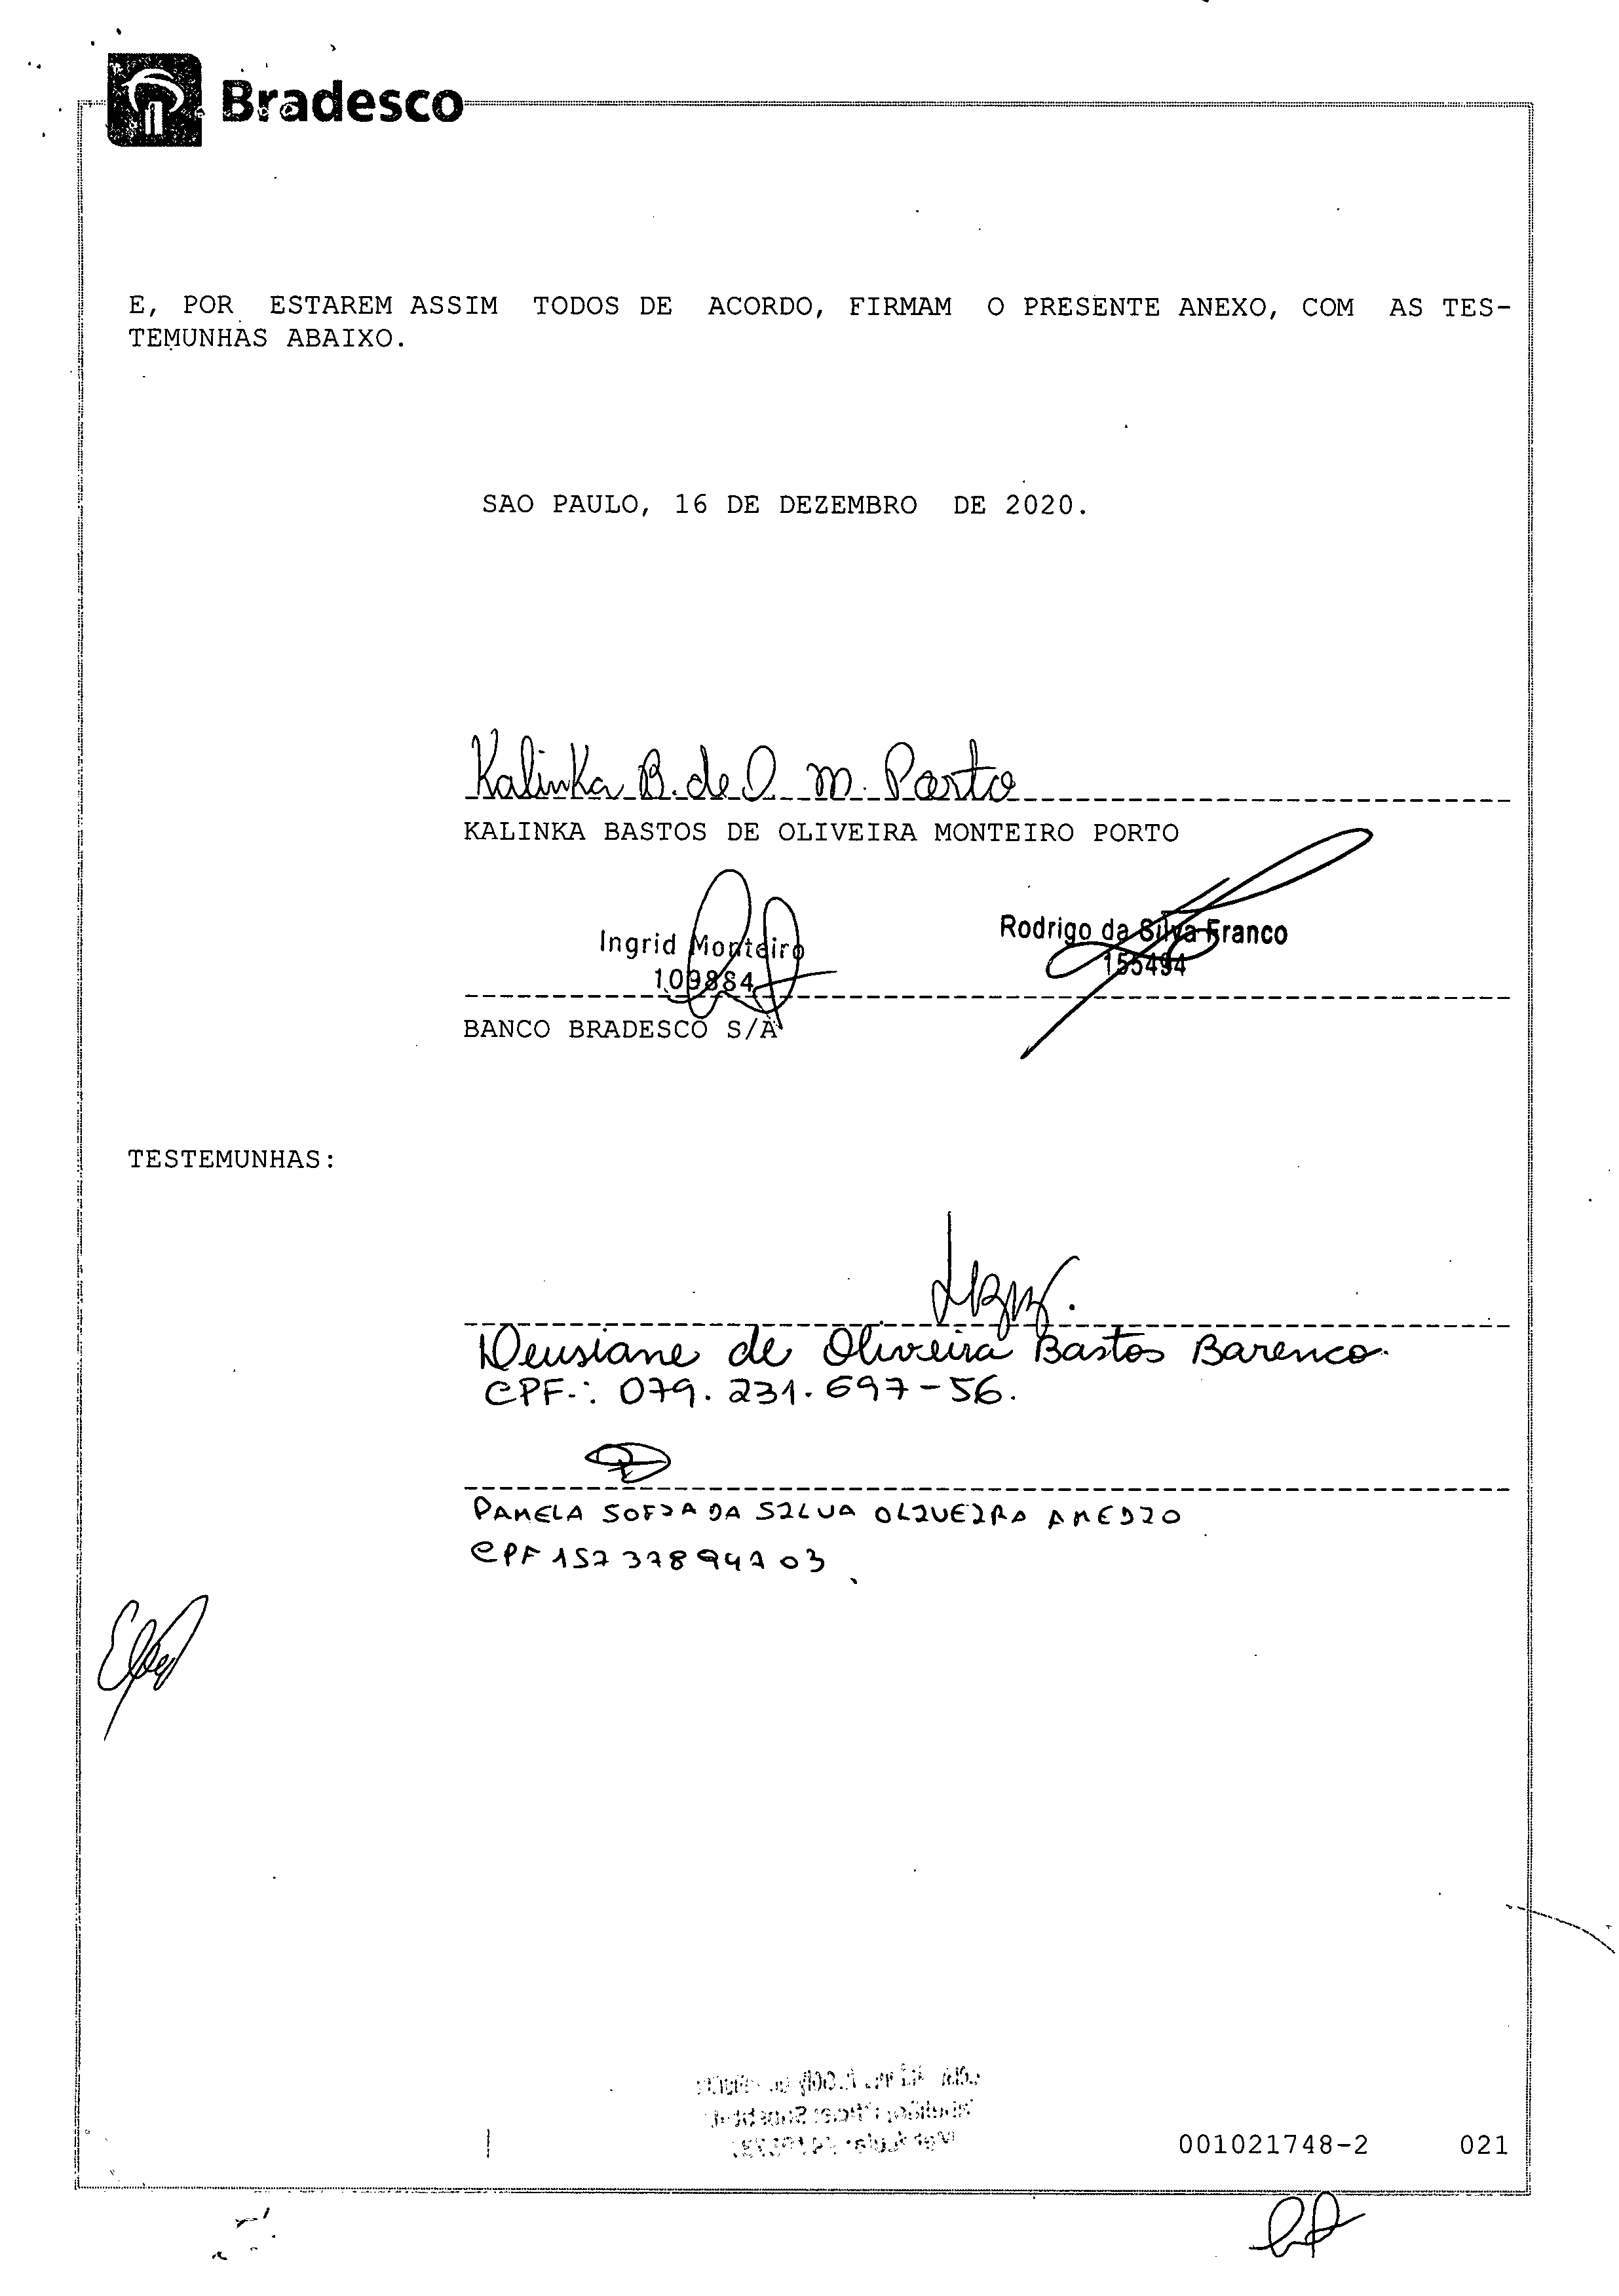 Bradesco
E, POR ESTAREM ASSIM TODOS DE ACORDO, FIRMAM O PRESENTE ANEXO, COM AS TES-
TEMUNHAS ABAIXO.
SAO PAULO, 16 DE DEZEMBRO DE 2020.
Kalinka B. de O. M. Porto
KALINKA BASTOS DE OLIVEIRA MONTEIRO PORTO
Ingrid Monteiro
109884
Rodrigo da Silva Franco
155494
BANCO BRADESCO S/A
TESTEMUNHAS:
Deusiane de Oliveira Bastos Barenco.
CPF.: 079.231.697-56.
PAMELA SOFIA DA SILVA OLIVEIRA AMEDIO
CPF 03
001021748-2 021